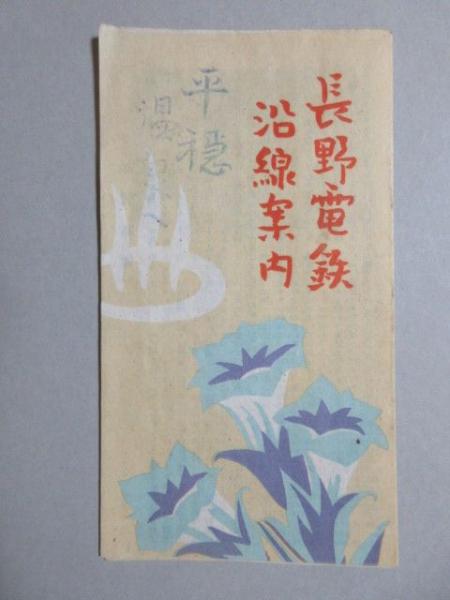 長野電鉄
沿線案内
平穏